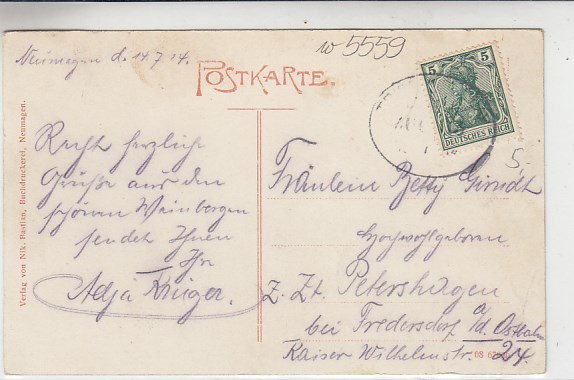 Neumagen d. 14.7.14.
w 5559
POSTKARTE.
5 5
DEUTSCHES REICH
5.-
Recht herzliche
Grüße aus den
schönen Weinbergen
sendet Ihnen
Ihr
Adja Krüger.
Fräulein Betty Girndt
Hochwohlgeboren
z. Zt. Petershagen
bei Fredersdorf a/d. Ostbahn
Kaiser Wilhelmstr. 24.
Verlag von Nik. Bastian, Buchdruckerei, Neumagen.